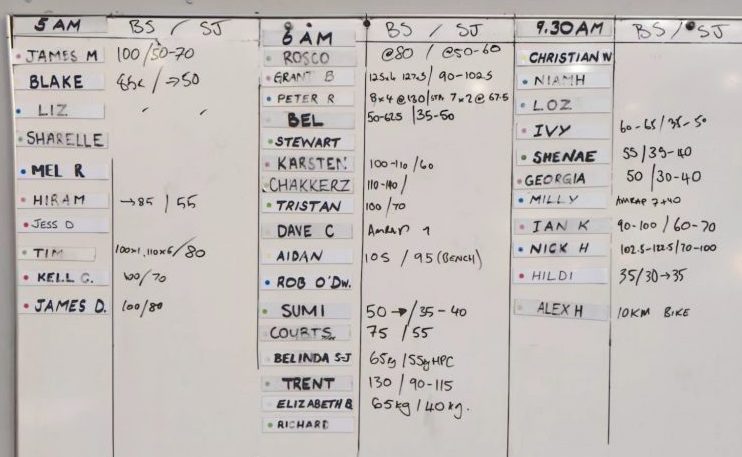 5 AM BS / SJ
JAMES M 100/50-70
BLAKE 85k / →50
LIZ
SHARELLE
MEL R
HIRAM →85 / 55
JESS D
TIM 100x1, 110x6/80
KELL G. 100/70
JAMES D. 100/80
6 AM BS / SJ
ROSCO @80 / @50-60
GRANT B 90-102.5
PETER R 8x4 @130 7x2 @ 67.5
BEL 50-62.5 / 35-50
STEWART
KARSTEN 100-110 / 60
CHAKKERZ 110-140/
TRISTAN 100 / 70
DAVE C AMRAP
AIDAN 105 / 95 (BENCH)
ROB O'DW.
SUMI 50 → / 35-40
COURTS 75 / 55
BELINDA S-J 65kg / 55kg HPC
TRENT 130 / 90-115
ELIZABETH B 65kg / 40kg.
RICHARD
9.30AM BS / SJ
CHRISTIAN W
NIAMH
LOZ
IVY 60-65 / 35-50
SHENAE 55 / 35-40
GEORGIA 50 / 30-40
MILLY AMRAP 7+40
IAN K 90-100 / 60-70
NICK H 102.5-122.5/70-100
HILDI 35/30→35
ALEX H 10KM BIKE